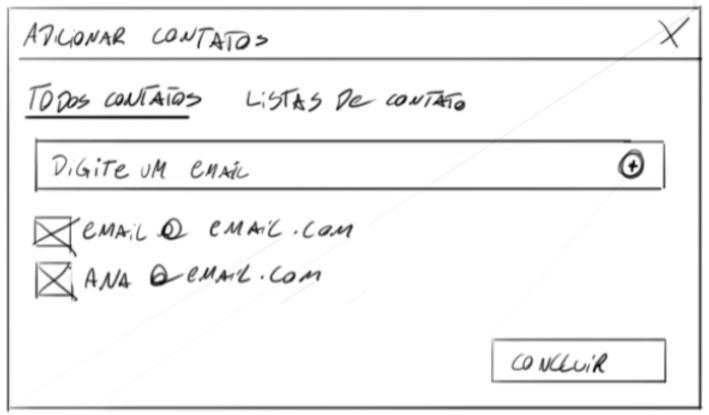 ADICIONAR CONTATOS X
TODOS CONTATOS LISTAS DE CONTATO
DIGITE UM EMAIL +
EMAIL@EMAIL.COM
ANA@EMAIL.COM
CONCLUIR